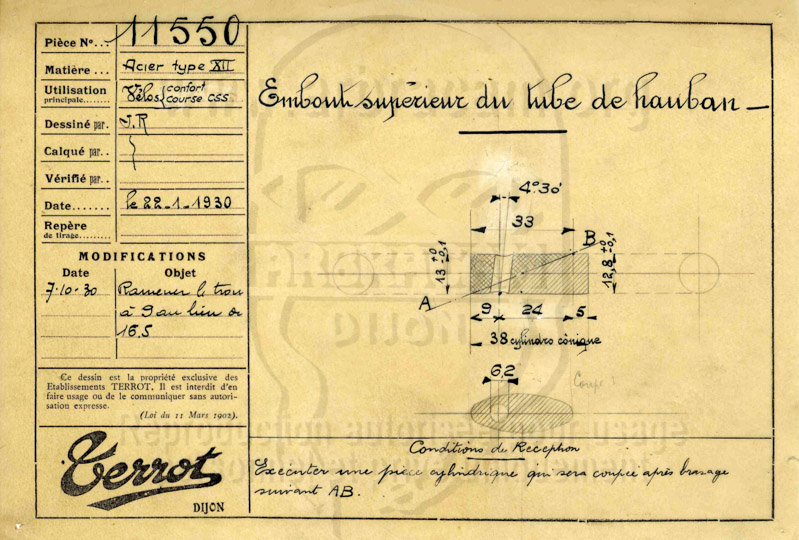 Pièce N°... 11550
Matière ... Acier type XII
Utilisation principale....... Vélos { confort course CSS
Dessiné par. J.R
Calqué par..
Vérifié par..
Date....... le 22-1-1930
Repère de tirage..........
MODIFICATIONS
Date Objet
7-10-30 Ramener le trou
à 9 au lieu de
16.5
Ce dessin est la propriété exclusive des
Etablissements TERROT. Il est interdit d'en
faire usage ou de le communiquer sans autori-
sation expresse.
(Loi du 11 Mars 1902).
Terrot
DIJON
Embout supérieur du tube de hauban
4°30'
33
B
13 +0 -0,1
12,8 +0 -0,1
A
9 24 5
38 cylindro cônique
6,2
Coupe
Conditions de Reception
Exécuter une pièce cylindrique qui sera coupée après brasage
suivant AB.